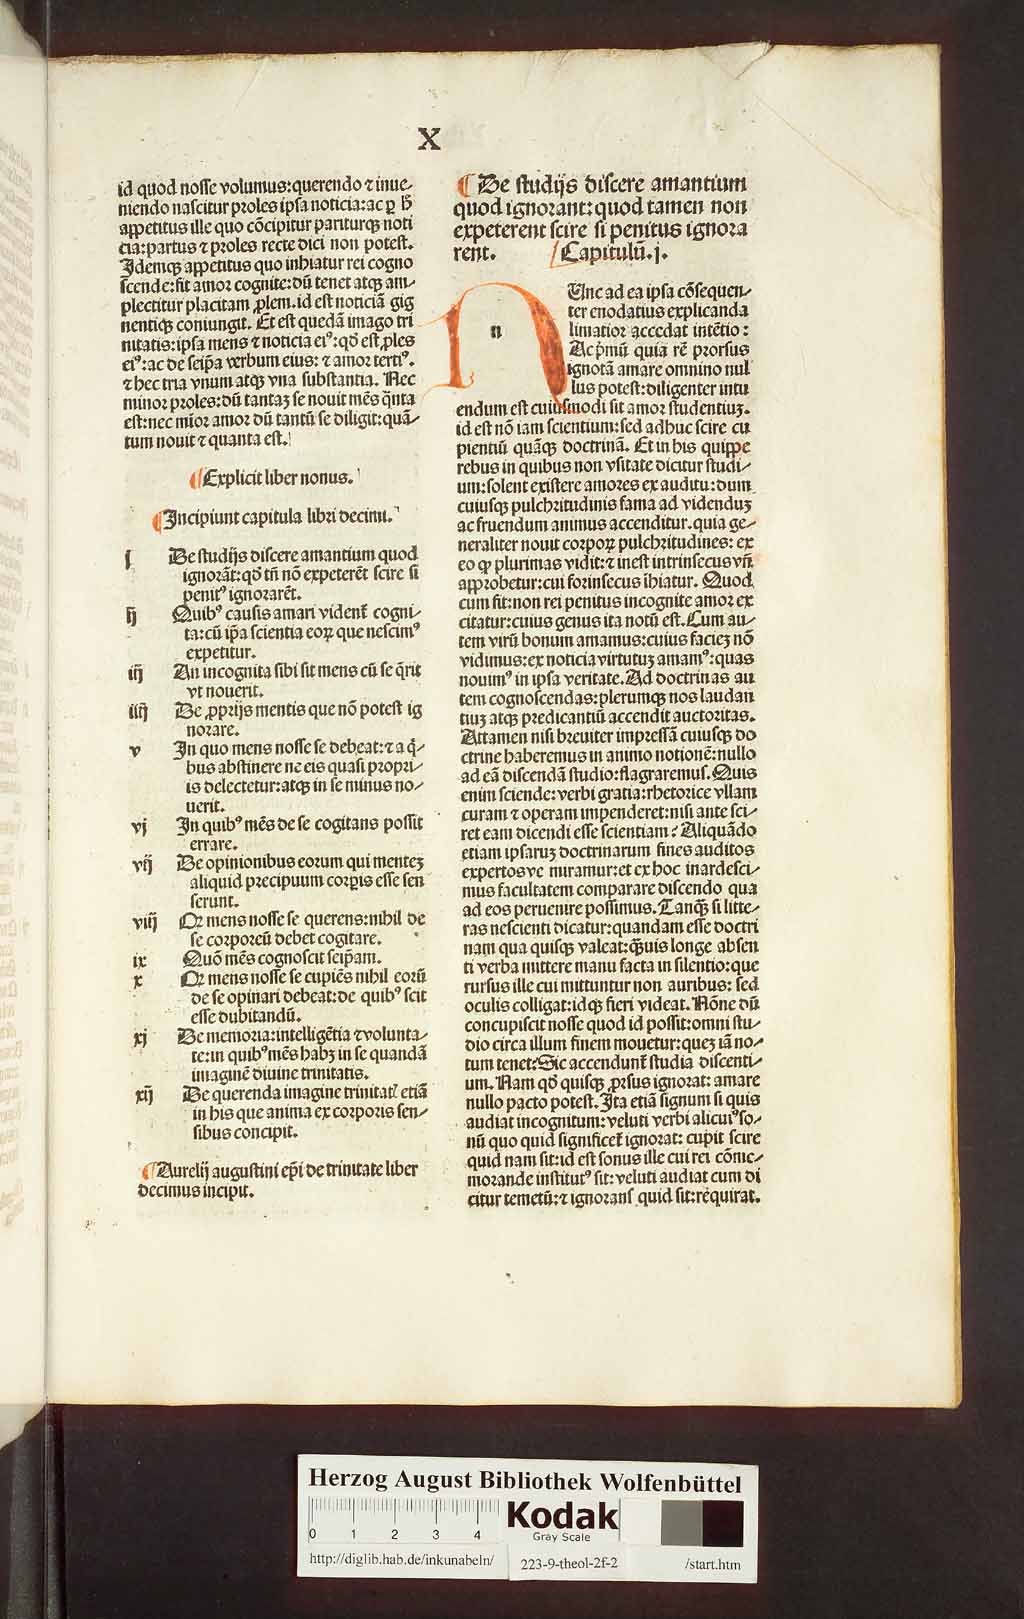 X
id quod nosse volumus:querendo ⁊ inue-
niendo nascitur proles ipsa noticia:ac ꝑ
appetitus ille quo cōcipitur pariturqꝫ noti
cia:partus ⁊ proles recte dici non potest.
Idemqꝫ appetitus quo inhiatur rei cogno
scende:fit amor cognite:dū tenet atqꝫ am-
plectitur placitam ꝓlem.id est noticiā gig
nentiqꝫ coniungit. Et est quedā imago tri
nitatis:ipsa mens ⁊ noticia eiꝰ:qd̄ est ꝓles
eiꝰ:ac de seip̄a verbum eius:⁊ amor tertiꝰ.
⁊ hec tria vnum atqꝫ vna substantia. Nec
minor proles:dū tantaꝫ se nouit mēs q̄nta
est:nec mīor amor dū tantū se diligit:quā-
tum nouit ⁊ quanta est.
¶Explicit liber nonus.
¶Incipiunt capitula libri decimi.
j De studijs discere amantium quod
ignorāt:qd̄ tn̄ nō expeterēt scire si
penitꝰ ignorarēt.
ij Quibꝰ causis amari videnť cogni-
ta:cū ip̄a scientia eoꝝ que nescimꝰ
expetitur.
iij An incognita sibi sit mens cū se q̄rit
vt nouerit.
iiij De ꝓprijs mentis que nō potest ig
norare.
v In quo mens nosse se debeat:⁊ a q̄-
bus abstinere ne eis quasi propri-
is delectetur:atqꝫ in se minus no-
uerit.
vj In quibꝰ mēs de se cogitans possit
errare.
vij De opinionibus eorum qui menteꝫ
aliquid precipuum corꝑis esse sen
serunt.
viij Qꝛ mens nosse se querens:nihil de
se corporeū debet cogitare.
ix Quō mēs cognoscit seip̄am.
x Qꝛ mens nosse se cupiēs nihil eorū
de se opinari debeat:de quibꝰ scit
esse dubitandū.
xj De memoria:intelligētia ⁊volunta-
te:in quibꝰmēs habꝫ in se quandā
imaginē diuine trinitatis.
xij De querenda imagine trinitatꝭ etiā
in his que anima ex corporis sen-
sibus concipit.
¶Aurelij augustini ep̄i de trinitate liber
decimus incipit.
¶De studijs discere amantium
quod ignorant:quod tamen non
expeterent scire si penitus ignora
rent. Capitulū.j.
n Unc ad ea ipsa cōsequen-
ter enodatius explicanda
limatior accedat intētio:
Ac p̄mū quia rē prorsus
ignotā amare omnino nul
lus potest:diligenter intu
endum est cuiusmodi sit amor studentiuꝫ.
id est nō iam scientium:sed adhuc scire cu
pientiū quāqꝫ doctrinā. Et in his quippe
rebus in quibus non vsitate dicitur studi-
um:solent existere amores ex auditu:dum
cuiusqꝫ pulchritudinis fama ad videnduꝫ
ac fruendum animus accenditur.quia ge-
neraliter nouit corpoꝝ pulchritudines: ex
eo ꝙ plurimas vidit:⁊ inest intrinsecus vn̄
approbetur:cui forinsecus īhiatur. Quod
cum fit:non rei penitus incognite amor ex
citatur:cuius genus ita notū est.Cum au-
tem virū bonum amamus:cuius facieꝫ nō
vidimus:ex noticia virtutuꝫ amamꝰ:quas
nouimꝰ in ipsa veritate.Ad doctrinas au
tem cognoscendas:plerumqꝫ nos laudan
tiuꝫ atqꝫ predicantiū accendit auctoritas.
Attamen nisi breuiter impressā cuiusqꝫ do
ctrine haberemus in animo notionē:nullo
ad eā discendā studio:flagraremus.Quis
enim sciende:verbi gratia:rhetorice vllam
curam ⁊ operam impenderet:nisi ante sci-
ret eam dicendi esse scientiam? Aliquādo
etiam ipsaruꝫ doctrinarum fines auditos
expertosve miramur:et ex hoc inardesci-
mus facultatem comparare discendo qua
ad eos peruenire possimus.Tanqꝫ si litte-
ras nescienti dicatur:quandam esse doctri
nam qua quisqꝫ valeat:q̄uis longe absen
ti verba mittere manu facta in silentio:que
rursus ille cui mittuntur non auribus: sed
oculis colligat:idqꝫ fieri videat. Nōne dū
concupiscit nosse quod id possit:omni stu-
dio circa illum finem mouetur:queꝫ iā no-
tum tenet?Sic accendunť studia discenti-
um. Nam qd̄ quisqꝫ ꝓrsus ignorat: amare
nullo pacto potest. Ita etiā signum si quis
audiat incognitum: veluti verbi alicuiꝰ so-
nū quo quid significeť ignorat: cupit scire
quid nam sit:id est sonus ille cui rei cōme-
morande institutꝰ sit: veluti audiat cum di
citur temetū:⁊ ignorans quid sit:requirat.
Herzog August Bibliothek Wolfenbüttel
0 1 2 3 4
Kodak
Gray Scale
http://diglib.hab.de/inkunabeln/ 223-9-theol-2f-2 /start.htm